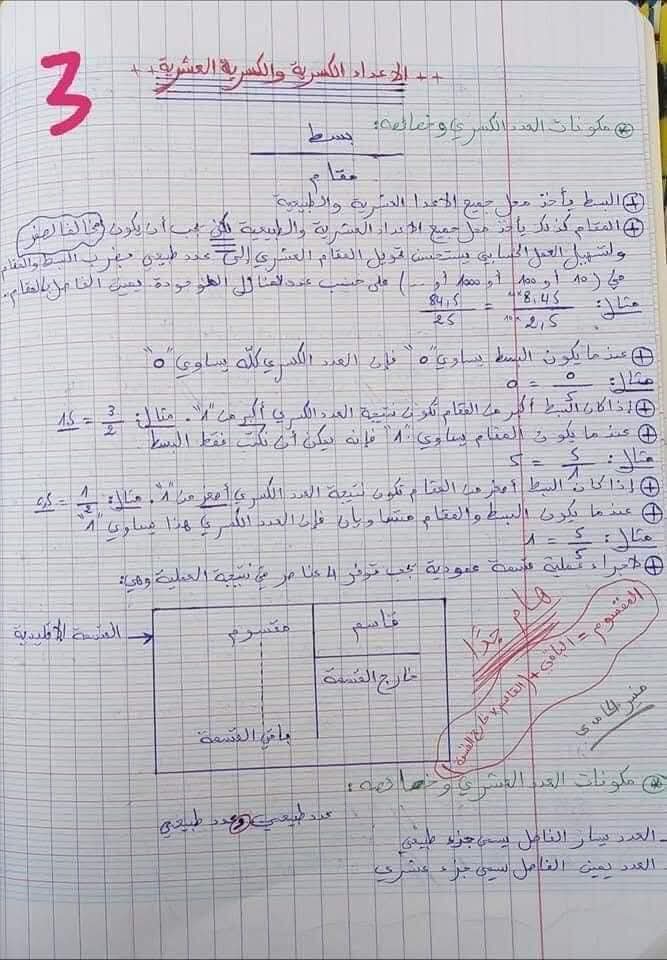 3
++ الاعداد الكسرية والكسرية العشرية ++
⊛ مكونات العدد الكسري وخصائصه:
بسط
مقام
⊕ البسط يأخذ محل جميع الاعداد العشرية والطبيعية
⊕ المقام كذلك يأخذ محل جميع الاعداد العشرية والطبيعية لكن يجب أن يكون مخالفا للصفر
ولتسهيل العمل الحسابي يستحسن تحويل المقام العشري إلى عدد طبيعي بضرب البسط والمقام
في (10 أو 100 أو 1000 أو ...) على حسب عدد المنازل الموجودة يمين الفاصل بالمقام.
مثال: 8,45 / 2,5 = 84,5 / 25
⊕ عندما يكون البسط يساوي "0" فإن العدد الكسري كله يساوي "0"
مثال: 0 / 5 = 0
⊕ إذا كان البسط أكبر من المقام تكون نتيجة العدد الكسري أكبر من "1". مثال: 3 / 2 = 1,5
⊕ عندما يكون المقام يساوي "1" فإنه يمكن أن نكتب فقط البسط
مثال: 5 / 1 = 5
⊕ إذا كان البسط أصغر من المقام تكون نتيجة العدد الكسري أصغر من "1". مثال: 1 / 2 = 0,5
⊕ عندما يكون البسط والمقام متساويان فإن العدد الكسري هذا يساوي "1"
مثال: 5 / 5 = 1
⊕ لاجراء عملية قسمة عمودية يجب توفر 4 عناصر في نتيجة العملية وهي:
القسمة الإقليدية
مقسوم
قاسم
خارج القسمة
باقي القسمة
هام جدًا
المقسوم = الباقي + (القاسم × خارج القسمة)
⊛ مكونات العدد العشري وخصائصه:
عدد طبيعي و عدد طبيعي
- العدد يسار الفاصل يسمى جزء طبيعي
العدد يمين الفاصل يسمى جزء عشري